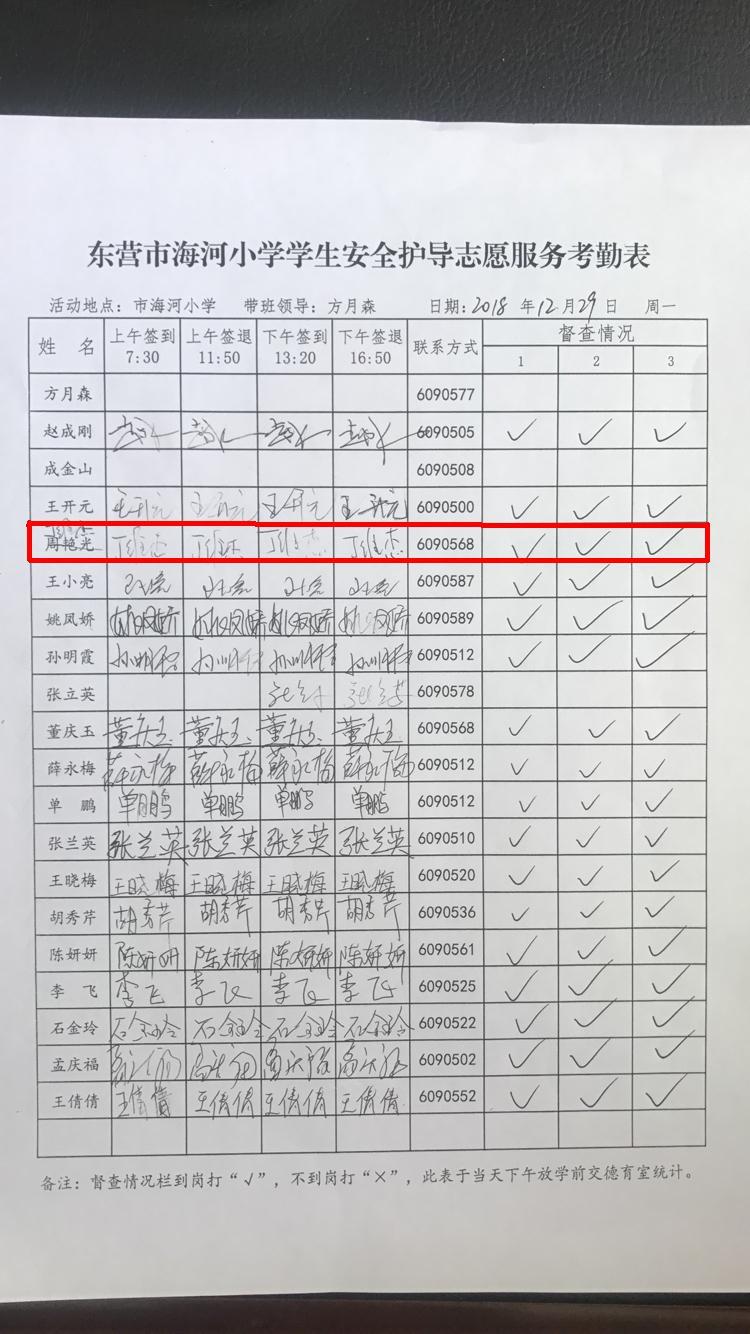 东营市海河小学学生安全护导志愿服务考勤表
活动地点：市海河小学 带班领导：方月森 日期：2018 年 12 月 29 日 周一
姓 名 上午签到 7:30 上午签退 11:50 下午签到 13:20 下午签退 16:50 联系方式 督查情况
1 2 3
方月森 6090577
赵成刚 6090505 ✓ ✓ ✓
成金山 6090508
王开元 王开元 王开元 王开元 王开元 6090500 ✓ ✓ ✓
周艳光 6090568 ✓ ✓ ✓
王小亮 6090587 ✓ ✓ ✓
姚凤娇 姚凤娇 姚凤娇 姚凤娇 姚凤娇 6090589 ✓ ✓ ✓
孙明霞 6090512 ✓ ✓ ✓
张立英 6090578
董庆玉 董庆玉 董庆玉 董庆玉 董庆玉 6090568 ✓ ✓ ✓
薛永梅 薛永梅 薛永梅 薛永梅 薛永梅 6090512 ✓ ✓ ✓
单 鹏 单鹏 单鹏 单鹏 单鹏 6090512 ✓ ✓ ✓
张兰英 张兰英 张兰英 张兰英 张兰英 6090510 ✓ ✓ ✓
王晓梅 王晓梅 王晓梅 王晓梅 王晓梅 6090520 ✓ ✓ ✓
胡秀芹 胡秀芹 胡秀芹 胡秀芹 胡秀芹 6090536 ✓ ✓ ✓
陈妍妍 陈妍妍 陈妍妍 陈妍妍 陈妍妍 6090561 ✓ ✓ ✓
李 飞 李飞 李飞 李飞 李飞 6090525 ✓ ✓ ✓
石金玲 石金玲 石金玲 石金玲 石金玲 6090522 ✓ ✓ ✓
孟庆福 6090502 ✓ ✓ ✓
王倩倩 王倩倩 王倩倩 王倩倩 王倩倩 6090552 ✓ ✓ ✓
备注：督查情况栏到岗打“√”，不到岗打“×”，此表于当天下午放学前交德育室统计。